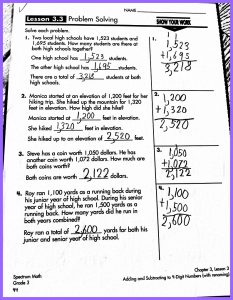 NAME
Lesson 3.3 Problem Solving
SHOW YOUR WORK
Solve each problem.
1. Two local high schools have 1,523 students and
1,695 students. How many students are there at
both high schools together?
One high school has 1,523 students.
The other high school has 1,695 students.
There are a total of 3,218 students at both
high schools.
1.
1,523
+1,695
3,218
2. Monica started at an elevation of 1,200 feet for her
hiking trip. She hiked up the mountain for 1,320
feet in elevation. How high did she hike?
Monica started at 1,200 feet in elevation.
She hiked 1,320 feet in elevation.
She hiked up to an elevation of 2,520 feet.
2.
1,200
+1,320
2,520
3. Steve has a coin worth 1,050 dollars. He has
another coin worth 1,072 dollars. How much are
both coins worth?
Both coins are worth 2,122 dollars.
3.
1,050
+1,072
2,122
4. Ray ran 1,100 yards as a running back during
his junior year of high school. During his
senior year in high school, he ran 1,500 yards as a
running back. How many yards did he run in
both years combined?
Ray ran a total of 2,600 yards for both his
junior and senior year of high school.
4.
1,100
+1,500
2,600
Spectrum Math
Grade 3
Chapter 3, Lesson 3
Adding and Subtracting to 4-Digit Numbers (with renaming)